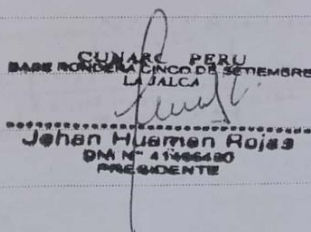 CUNARC PERU
BASE RONDERA CINCO DE SETIEMBRE
LA JALCA
Johan Huaman Rojas
DNI N° 41466480
PRESIDENTE